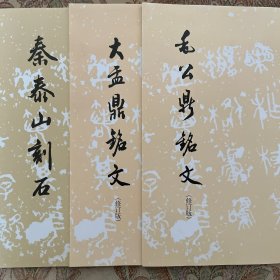 秦泰山刻石
大盂鼎铭文
(修订版)
毛公鼎铭文
(修订版)